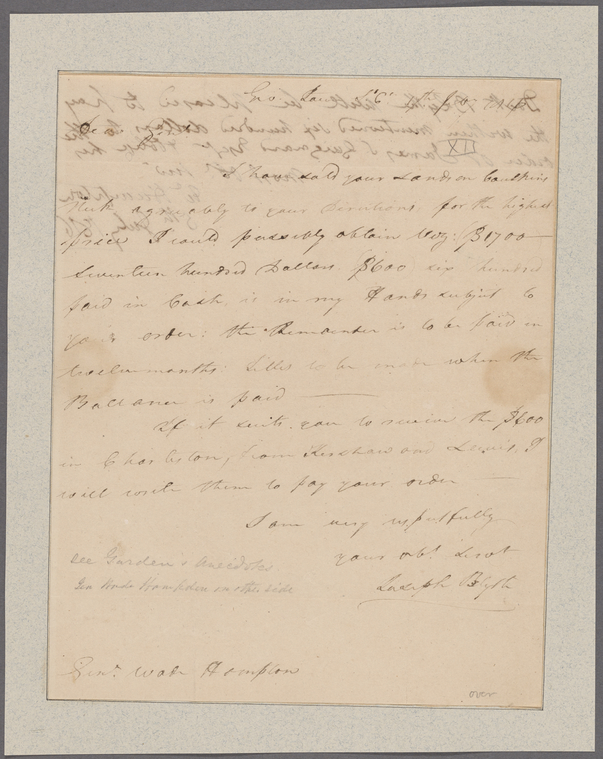 Geo Town
De
I have sold your Lands on Caulkins
Neck agreeably to your Directions, for the highest
price I could possibly obtain Viz: $1700
Seventeen hundred Dollars. $600 six hundred
paid in Cash, is in my Hands subject to
your order: the Remainder is to be paid in
twelve months: titles to be made when the
Ballance is paid
If it suits you to receive the $600
in Charleston, from Kershaw and Lewis, I
will write them to pay your order
I am very respectfully
your obt Servt
Joseph Blyth
see Garden's Anecdotes
Gen Wade Hampden on other side
Genl. Wade Hampton
over